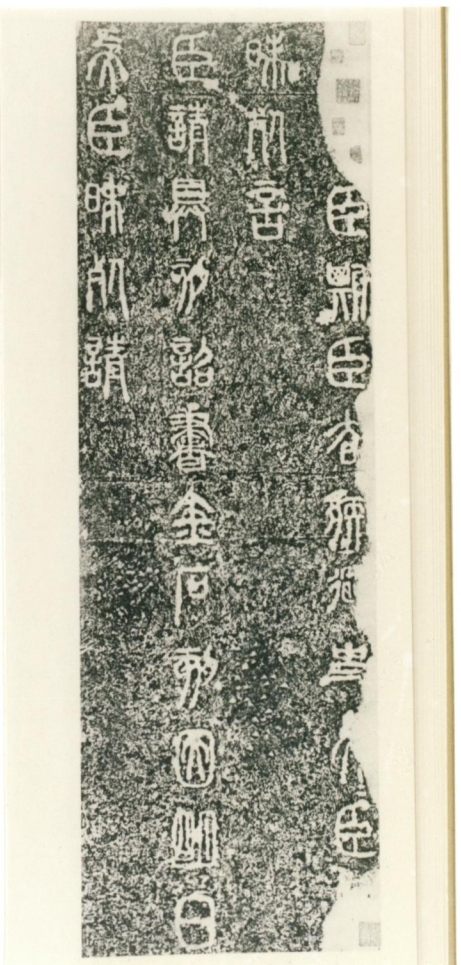 臣斯臣去疾御史夫臣
昧死言
臣請具刻詔書金石刻因明白
矣臣昧死請